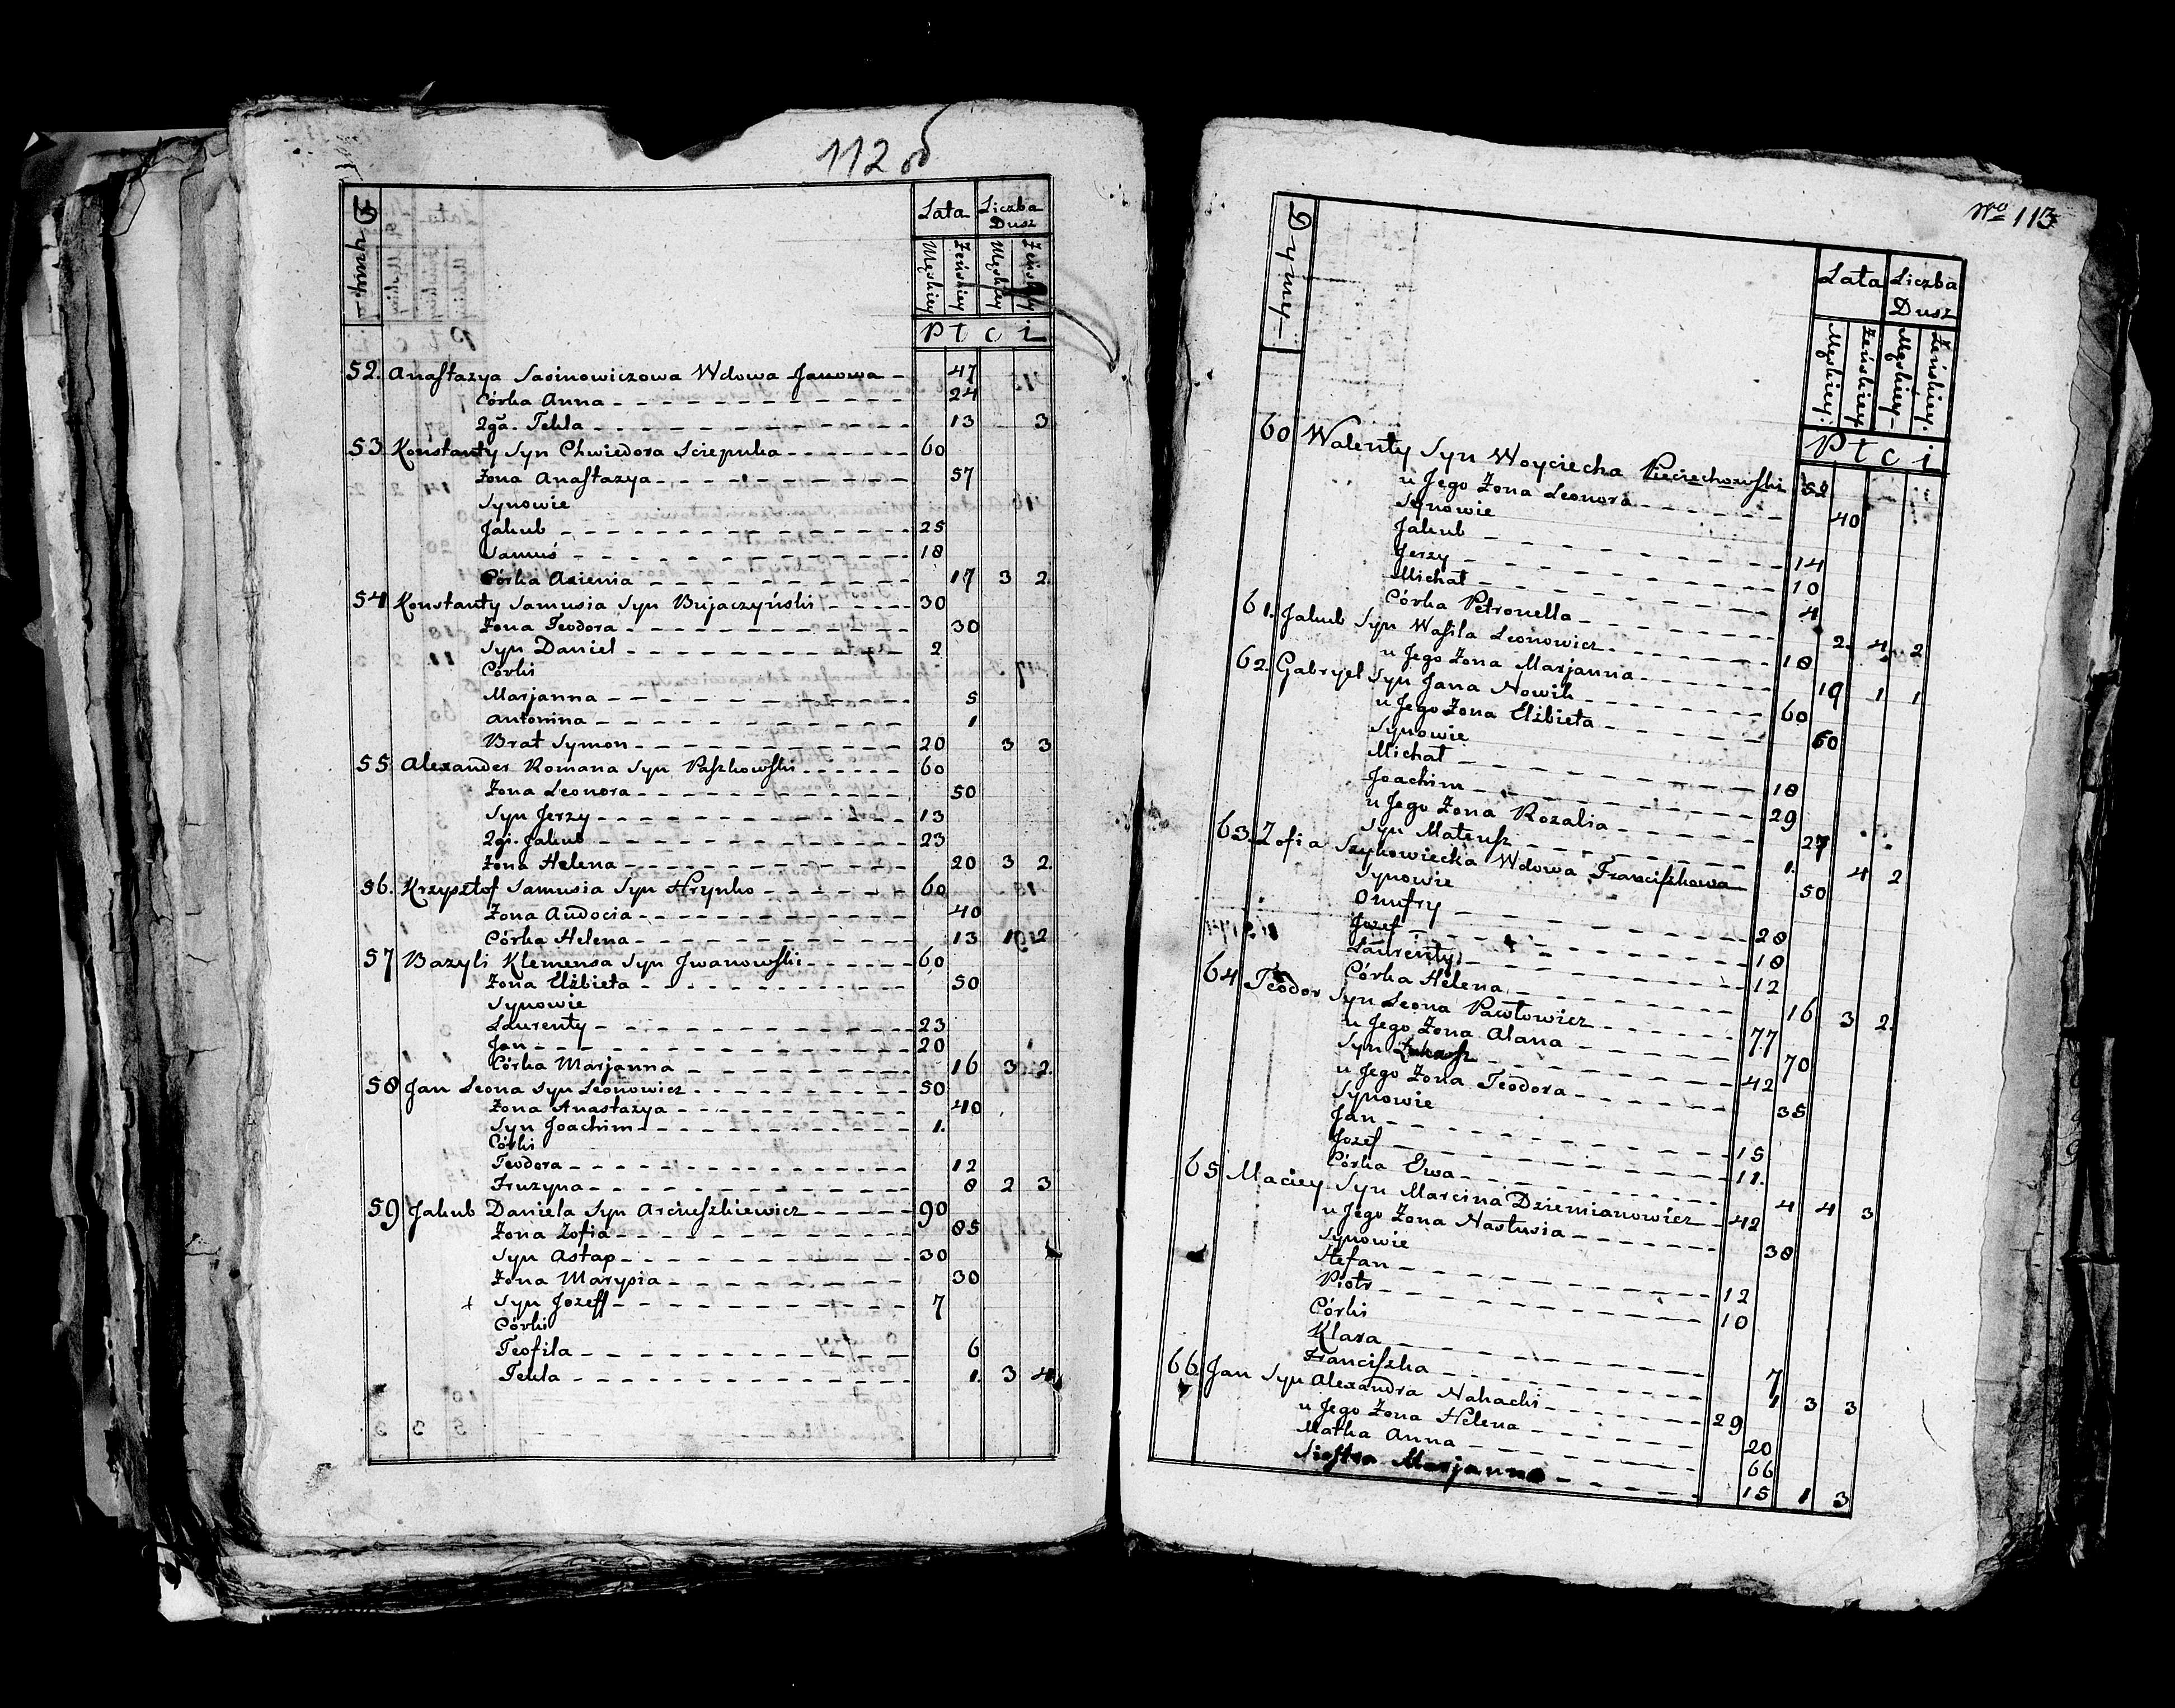 112 об
Dymy
Lata Liczba Dusz
Męskiey Żeńskiey Męskiey Żeńskiey
Płci
52. Anastazya Sasinowiczowa Wdowa Janowa 47
Córka Anna 24
2ga. Tekla 13 3
53 Konstanty Syn Chwiedora Sciepuka 60
Żona Anastazya 57
Synowie
Jakub 25
Samuś 18
Córka Axienia 17 3 2.
54 Konstanty Samusia Syn Bujaczyński 30
Żona Teodora 30
Syn Daniel 2
Córki
Marjanna 5
Antonina 1
Brat Symon 20 3 3
55 Alexander Romana Syn Paszkowski 60
Żona Leonora 50
Syn Jerzy 13
2gi. Jakub 23
Żona Helena 20 3 2.
56. Krzysztof Samusia Syn Hrynko 60
Żona Audocia 40
Córka Helena 13 1 2
57 Bazyli Klemensa Syn Jwanowski 60
Żona Elżbieta 50
Synowie
Laurenty 23
Jan 20
Córka Marjanna 16 3 2.
58 Jan Leona Syn Leonowicz 50
Żona Anastazya 40
Syn Joachim 1.
Córki
Teodora 12
Fruzyna 8 2 3
59 Jakub Daniela Syn Arciuszkiewicz 90
Żona Zofia 85
Syn Astap 30
Żona Marysia 30
Syn Jozeff 7
Córki
Teofila 6
Tekla 1. 3 4
No 113
Dymy
Lata Liczba Dusz
Męskiey Żeńskiey Męskiey Żeńskiey
Płci
60 Walenty Syn Woyciecha Pieciechowski 52
u Jego Żona Leonora 40
Synowie
Jakub 14
Jerzy 10
Michał 4
Córka Petronella 2. 4 2
61. Jakub Syn Wasila Leonowicz 18
u Jego Żona Marjanna 19 1 1
62. Gabryel Syn Jana Nowik 60
u Jego Żona Elżbieta 60
Synowie
Michał 18
Joachim 29
u Jego Żona Rozalia 27
Syn Mateusz 1. 4 2
63. Zofia Szykowiecka Wdowa Franciszkowa 50
Synowie
Onufry 28
Jozef 18
Laurenty 12
Córka Helena 16 3 2.
64 Teodor Syn Leona Pawłowicz 77
u Jego Żona Alana 70
Syn Łukasz 42
u Jego Żona Teodora 35
Synowie
Jan 15
Jozef 11.
Córka Ewa 4 4 3
65 Maciey Syn Marcina Dziemianowicz 42
u Jego Żona Nastusia 38
Synowie
Stefan 12
Piotr 10
Córki
Klara 7
Franciszka 1 3 3
66 Jan Syn Alexandra Nahacki 29
u Jego Żona Helena 20
Matka Anna 66
Siostra Marjanna 15 1 3